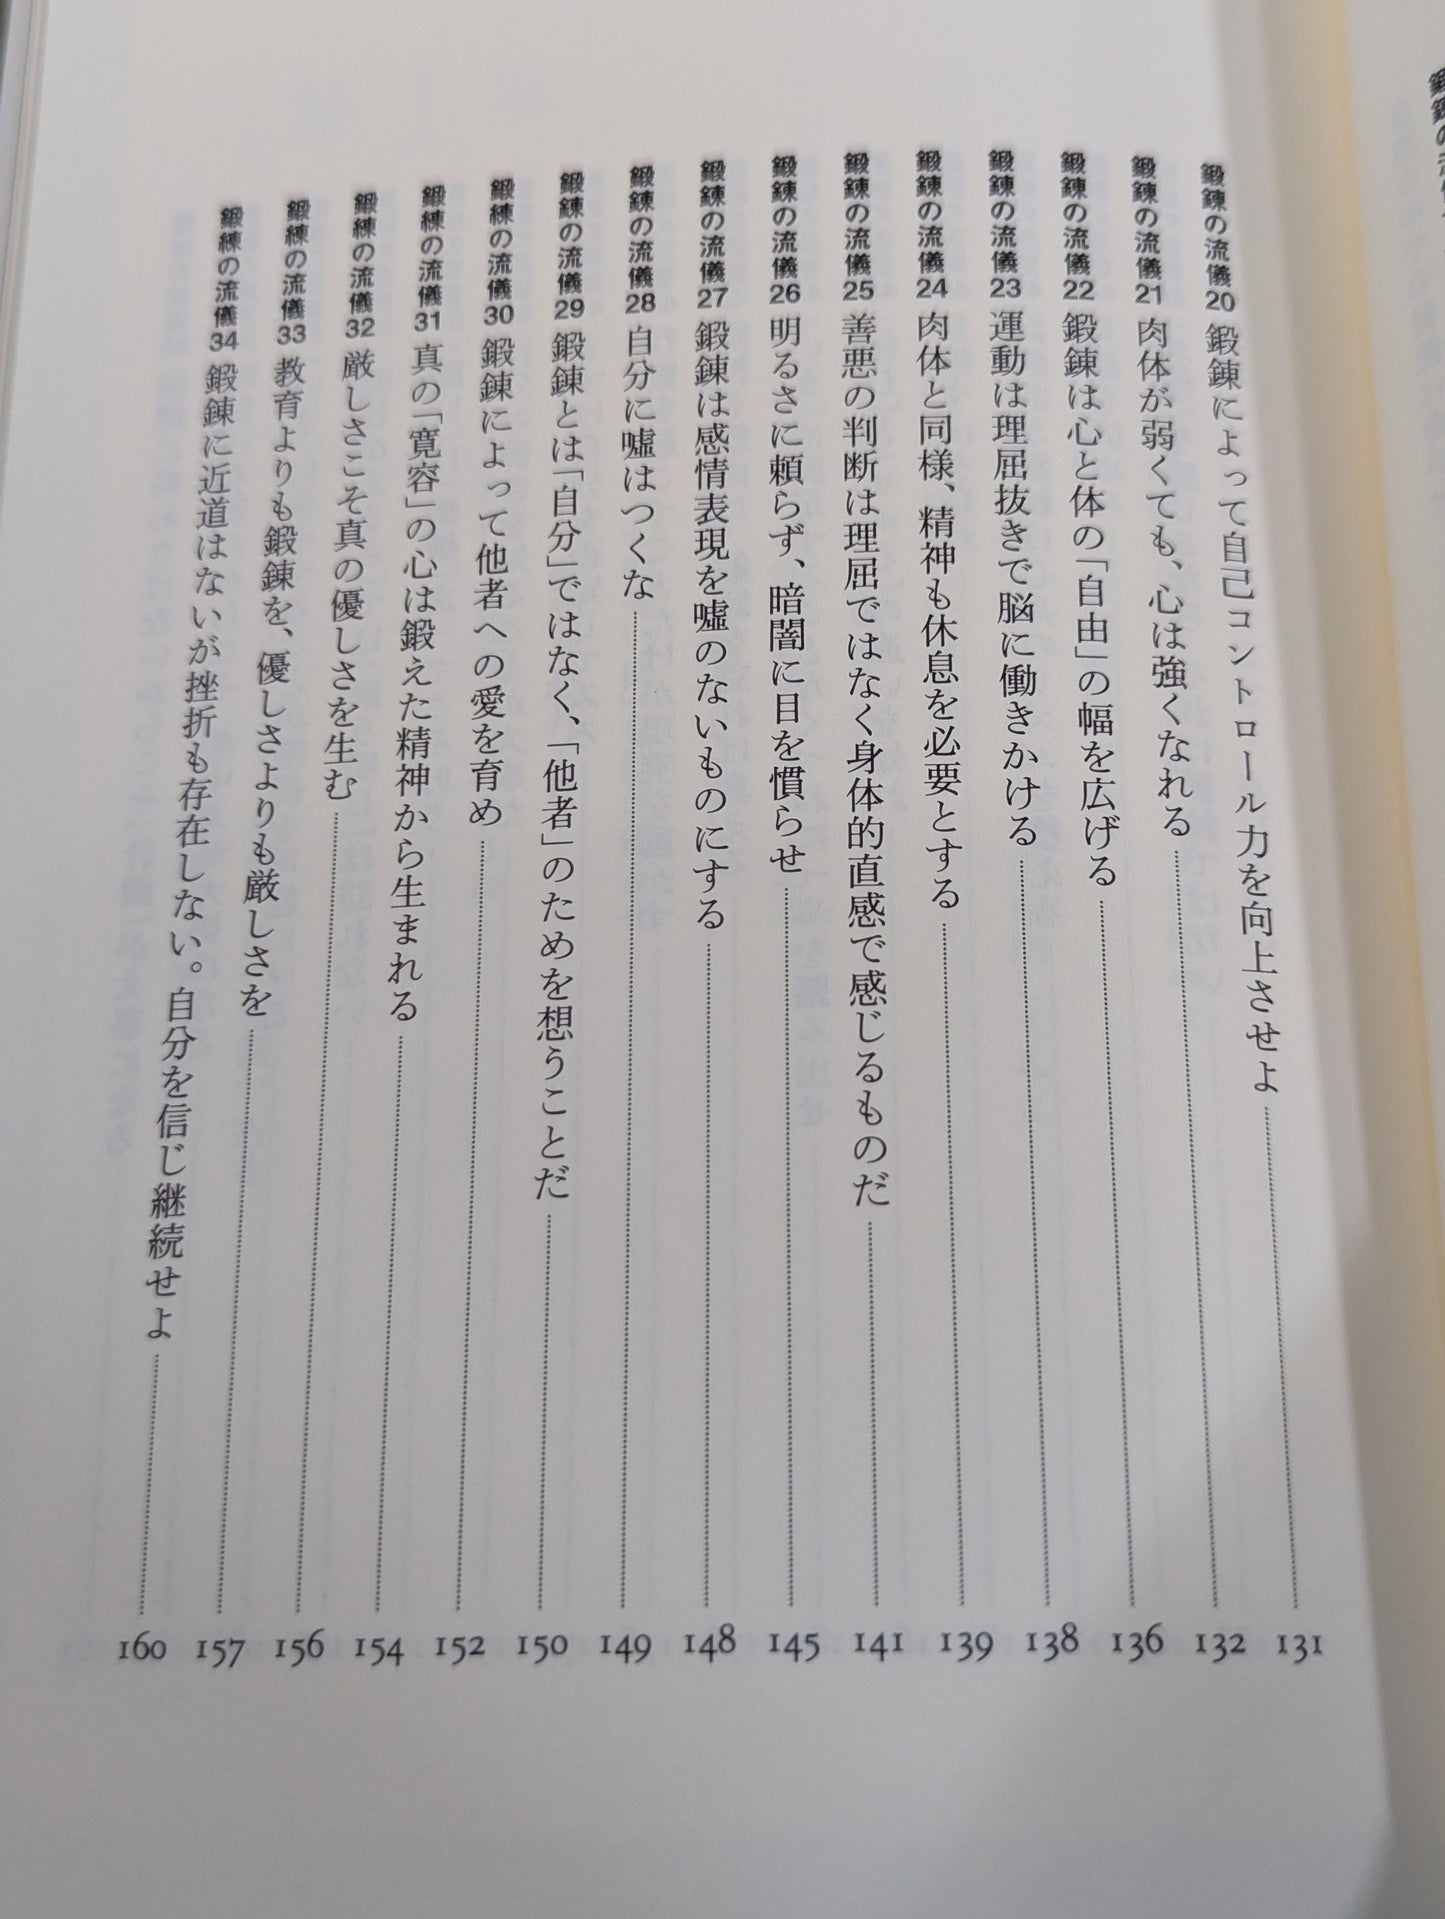 鍛錬の流儀20 鍛錬によって自己コントロール力を向上させよ 131
鍛錬の流儀21 肉体が弱くても、心は強くなれる 132
鍛錬の流儀22 鍛錬は心と体の「自由」の幅を広げる 136
鍛錬の流儀23 運動は理屈抜きで脳に働きかける 138
鍛錬の流儀24 肉体と同様、精神も休息を必要とする 139
鍛錬の流儀25 善悪の判断は理屈ではなく身体的直感で感じるものだ 141
鍛錬の流儀26 明るさに頼らず、暗闇に目を慣らせ 145
鍛錬の流儀27 鍛錬は感情表現を嘘のないものにする 148
鍛錬の流儀28 自分に嘘はつくな 149
鍛錬の流儀29 鍛錬とは「自分」ではなく、「他者」のためを想うことだ 150
鍛錬の流儀30 鍛錬によって他者への愛を育め 152
鍛錬の流儀31 真の「寛容」の心は鍛えた精神から生まれる 154
鍛錬の流儀32 厳しさこそ真の優しさを生む 156
鍛錬の流儀33 教育よりも鍛錬を、優しさよりも厳しさを 157
鍛錬の流儀34 鍛錬に近道はないが挫折も存在しない。自分を信じ継続せよ 160